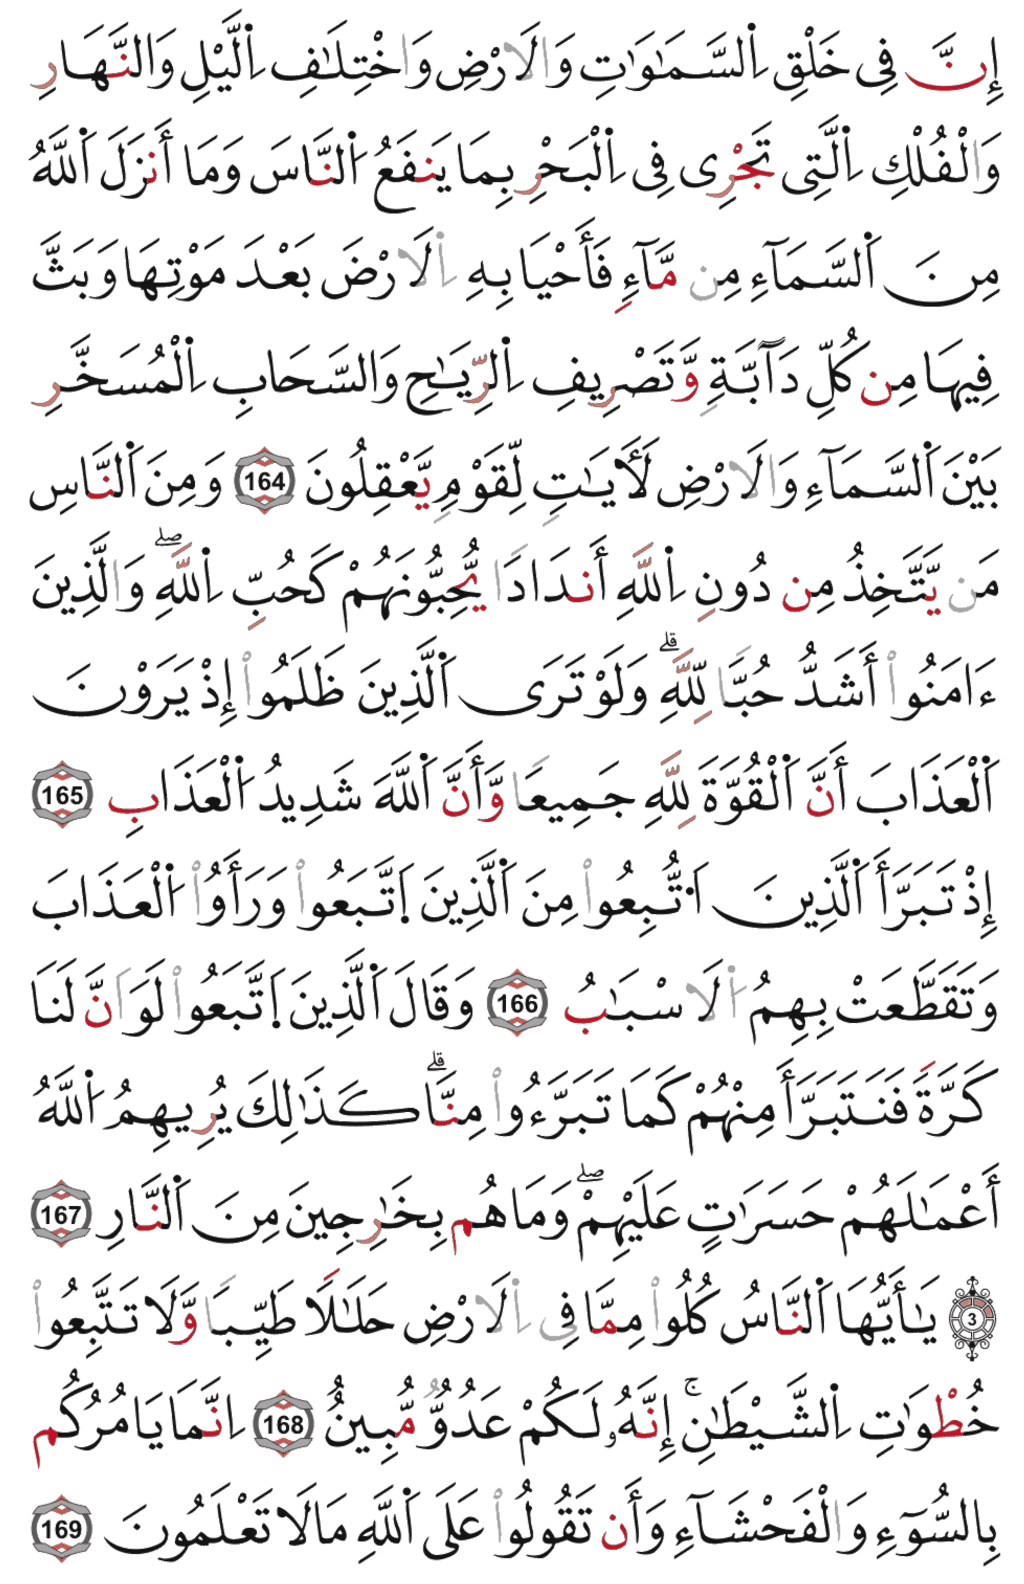 إِنَّ فِى خَلْقِ اِ۬لسَّمَٰوَٰتِ وَالَارْضِ وَاخْتِلَٰفِ اِ۬ليْلِ وَالنَّهَارِ
وَالْفُلْكِ اِ۬لتِى تَجْرِى فِى اِ۬لْبَحْرِ بِمَا يَنفَعُ اُ۬لنَّاسَ وَمَا أَنزَلَ اَ۬للَّهُ
مِنَ اَ۬لسَّمَآءِ مِن مَّآءٍ فَأَحْيَا بِهِ اِ۬لَارْضَ بَعْدَ مَوْتِهَا وَبَثَّ
فِيهَا مِن كُلِّ دَآبَّةٍ وَتَصْرِيفِ اِ۬لرِّيَٰحِ وَالسَّحَابِ اِ۬لْمُسَخَّرِ
بَيْنَ اَ۬لسَّمَآءِ وَالَارْضِ لَأٓيَٰتٍ لِّقَوْمٍ يَّعْقِلُونَ 164 وَمِنَ اَ۬لنَّاسِ
مَن يَّتَّخِذُ مِن دُونِ اِ۬للَّهِ أَندَادًا يُّحِبُّونَهُمْ كَحُبِّ اِ۬للَّهِۖ وَالَّذِينَ
ءَامَنُواْ أَشَدُّ حُبًّا لِّلَّهِۗ وَلَوْ تَرَى اَ۬لَّذِينَ ظَلَمُواْ إِذْ يَرَوْنَ
اَ۬لْعَذَابَ أَنَّ اَ۬لْقُوَّةَ لِلَّهِ جَمِيعًا وَأَنَّ اَ۬للَّهَ شَدِيدُ اُ۬لْعَذَابِ 165
إِذْ تَبَرَّأَ اَ۬لَّذِينَ اَ۟تُّبِعُواْ مِنَ اَ۬لَّذِينَ اَ۪تَّبَعُواْ وَرَأَوُاْ اُ۬لْعَذَابَ
وَتَقَطَّعَتْ بِهِمُ اُ۬لَاسْبَٰبُ 166 وَقَالَ اَ۬لَّذِينَ اَ۪تَّبَعُواْ لَوَ اَنَّ لَنَا
كَرَّةً فَنَتَبَرَّأَ مِنْهُمْ كَمَا تَبَرَّءُواْ مِنَّاۗ كَذَٰلِكَ يُرِيهِمُ اُ۬للَّهُ
أَعْمَٰلَهُمْ حَسَرَٰتٍ عَلَيْهِمْۖ وَمَا هُم بِخَٰرِجِينَ مِنَ اَ۬لنَّارِ 167
3 يَٰأَيُّهَا اَ۬لنَّاسُ كُلُواْ مِمَّا فِى اِ۬لَارْضِ حَلَٰلًا طَيِّبًا وَلَا تَتَّبِعُواْ
خُطْوَٰتِ اِ۬لشَّيْطَٰنِۚ إِنَّهُۥ لَكُمْ عَدُوٌّ مُّبِينٌ 168 اِنَّمَا يَامُرُكُم
بِالسُّوٓءِ وَالْفَحْشَآءِ وَأَن تَقُولُواْ عَلَى اَ۬للَّهِ مَا لَا تَعْلَمُونَ 169